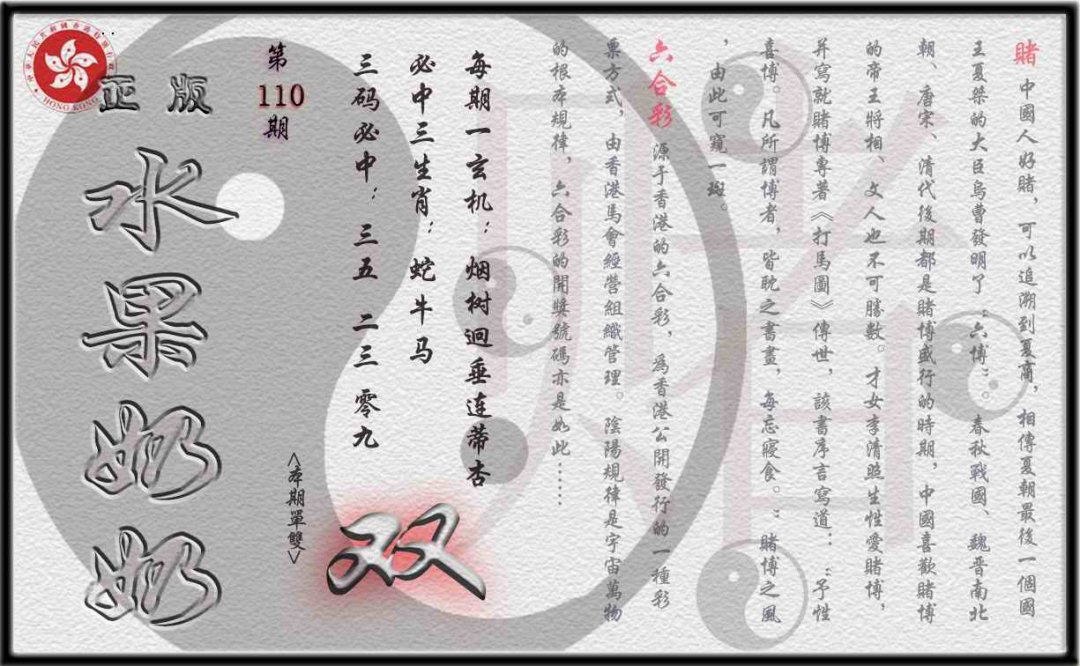 賭 中國人好賭，可以追溯到夏商，相傳夏朝最後一個國
王夏桀的大臣烏曹發明了“六博”。春秋戰國、魏晉南北
朝、唐宋、清代後期都是賭博盛行的時期，中國喜歡賭博
的帝王將相、文人也不可勝數。才女李清照生性愛賭博，
并寫就賭博專著《打馬圖》傳世，該書序言寫道：“予性
喜博。凡所謂博者，皆耽之書畫，每忘寢食。”賭博之風
，由此可窺一斑。
六合彩 源于香港的六合彩，為香港公開發行的一種彩
票方式，由香港馬會經營組織管理。陰陽規律是宇宙萬物
的根本規律，六合彩的開獎號碼亦是如此……
每期一玄机：烟树迴垂连蒂杏
必中三生肖：蛇牛马
三码必中：三五 二三 零九
双
<本期單雙>
第110期
正版
水果奶奶
HONG KONG